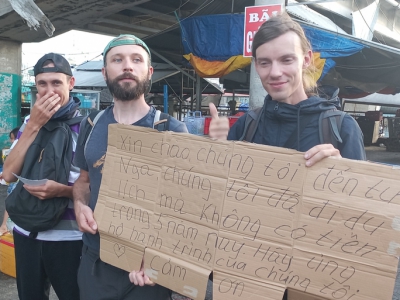 BÃI
Xin chào, chúng tôi đến từ
Nga, chúng tôi đã đi du
lịch mà không có tiền
trong 5 năm nay. Hãy ủng
hộ hành trình của chúng tôi
Cảm ơn